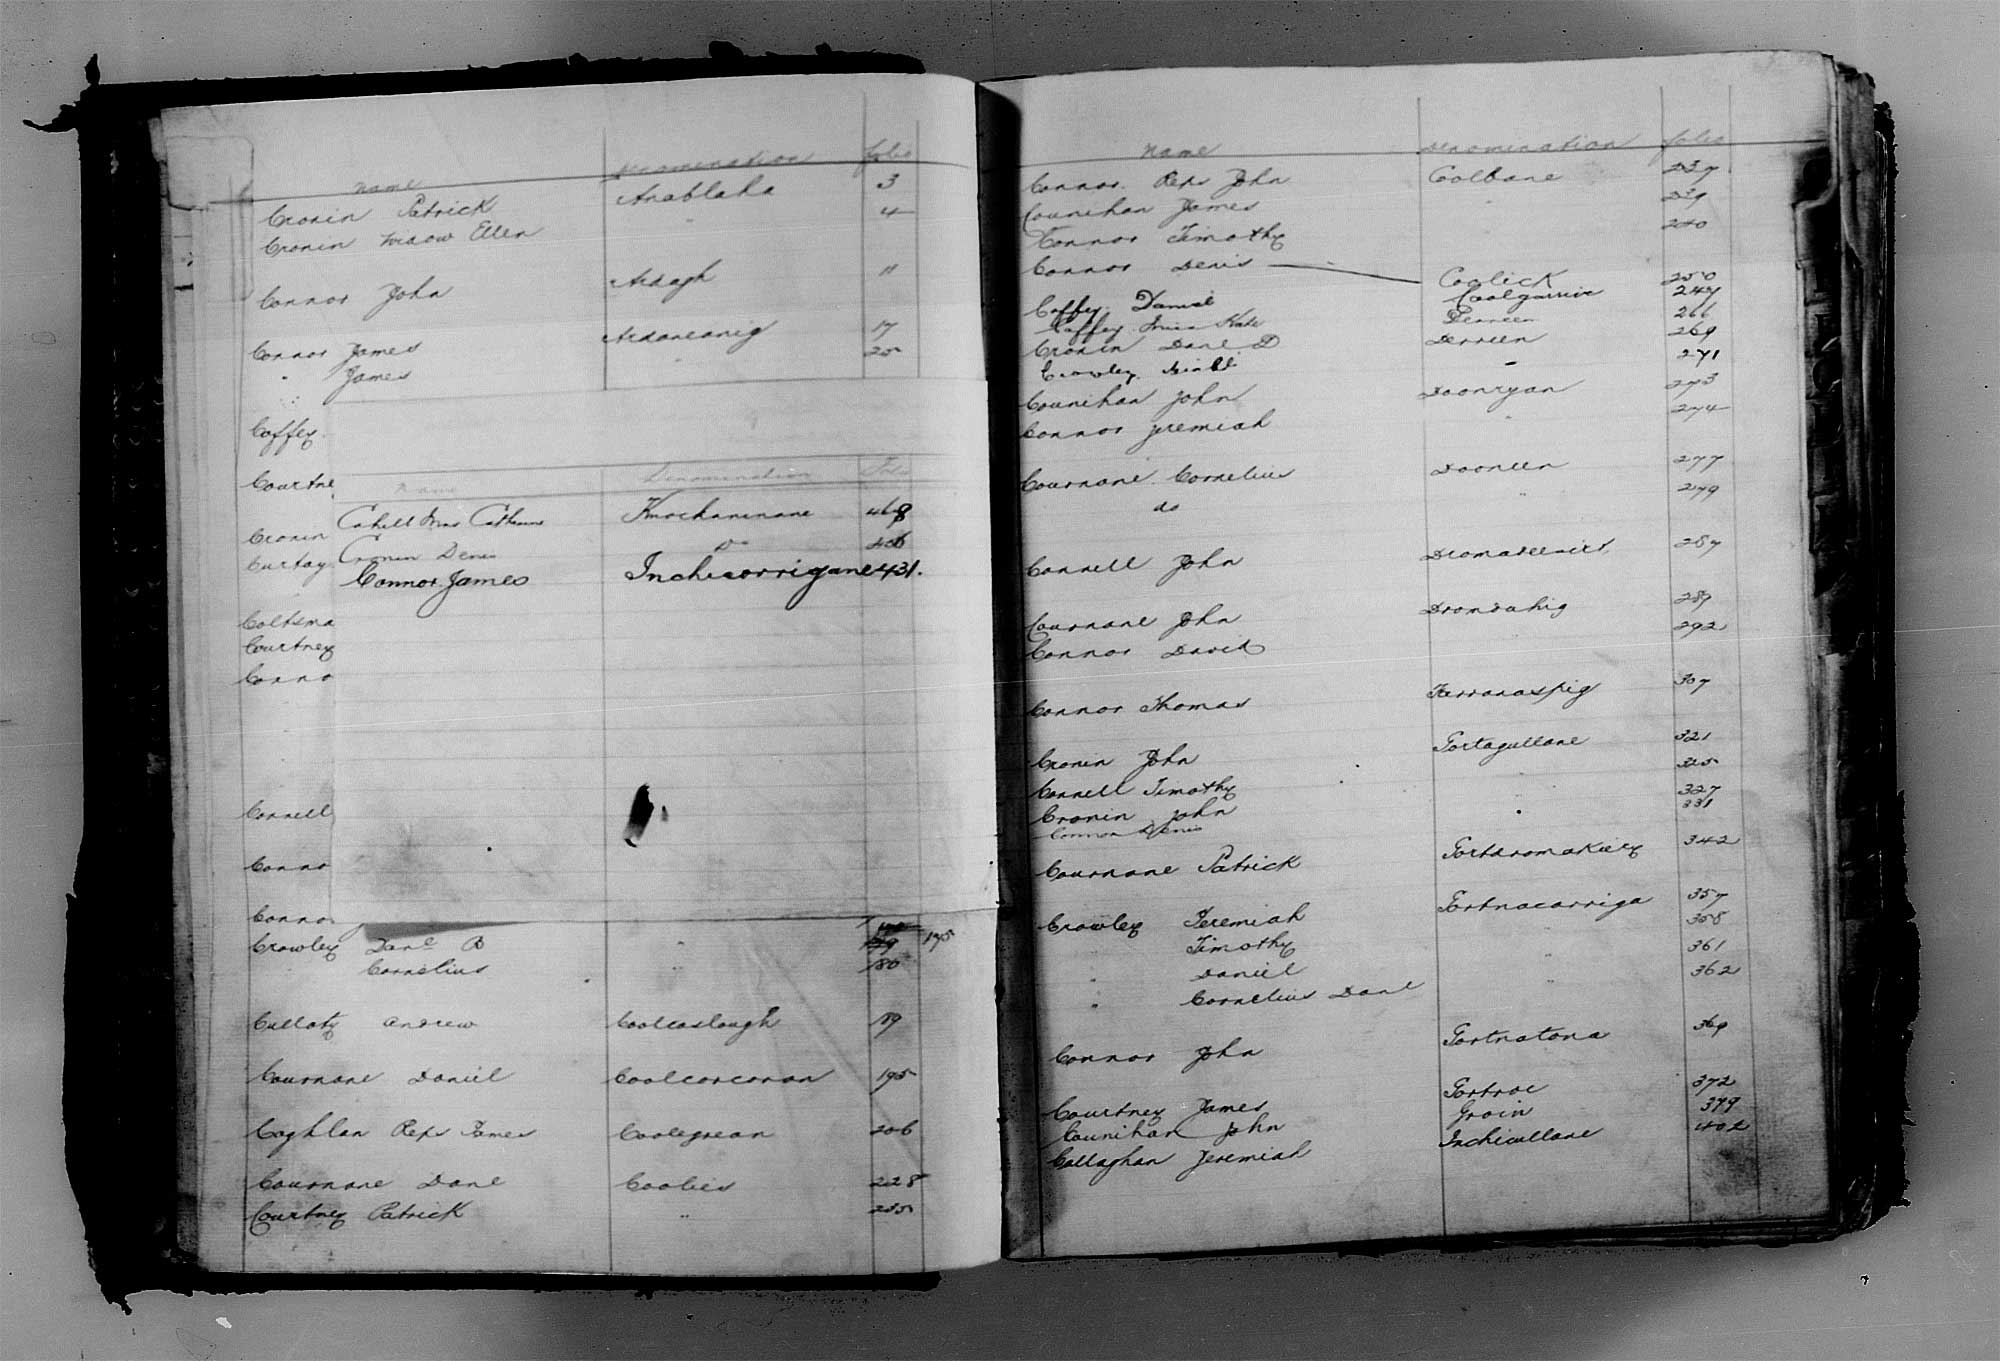 Name Denomination folio
Cronin Patrick Anablaha 3
Cronin Widow Ellen " 4
Connor John Ardagh 11
Connor James Ardaneanig 17
" James " 25
Coffey
Courtne
Name Denomination Folio
Cahill Mrs Catherine Knockaninane 468
Cronin
Cronin Denis Do 406
Curtay
Connor James Inchicorrigane 431.
Coltsma
Courtney
Conno
Connell
Conno
Conno
Crowley Danl B " 175
" Cornelius " 180
Culloty Andrew Coolcaslough 189
Cournane Daniel Coolcorcoran 195
Coghlan Reps James Coolegrean 206
Cournane Danl Coolies 228
Courtney Patrick " 235
Name Denomination folio
Connor Reps John Coolbane 237
Counihan James " 239
Connor Timothy " 240
Connor Denis Coolick 250
Coffey Daniel Coolgarriv 247
Coffey Miss Kate Derreen 266
Cronin Danl D Derreen 269
Crowley Michl " 271
Counihan John Doonryan 273
Connor Jeremiah " 274
Cournane Cornelius Dooneen 277
do " 279
Connell John 287
Cournane John Dromdahig 289
Connor David 292
Connor Thomas Ferranaspig 307
Cronin John Gortagullane 321
Connell Timothy 325
Cronin John " 327
Connor Denis 331
Cournane Patrick Gortdromakiery 342
Crowley Jeremiah Gortnacarriga 357
" Timothy " 358
" Daniel " 361
" Cornelius Danl 362
Connor John Gortnatona 369
Courtney James Gortroe 372
Counihan John Groin 379
Callaghan Jeremiah Inchicullane 402